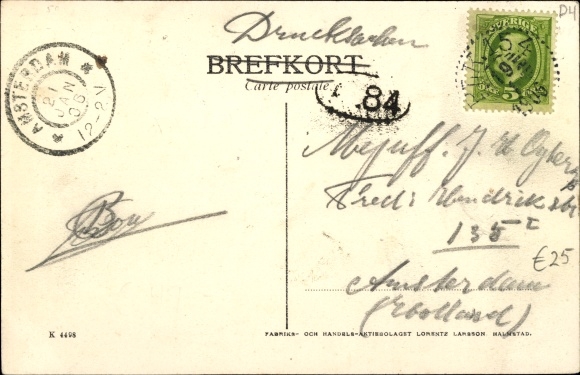 D4
Drucksachen
BREFKORT
Carte postale
SVERIGE
5
84
AMSTERDAM
21
JAN
06
12-2V
Mejuff. J. H.
Fred: Hendrikstr
135 I
€25
Amsterdam
(Holland)
K 4498
FABRIKS- OCH HANDELS-AKTIEBOLAGET LORENTZ LARSSON HALMSTAD.